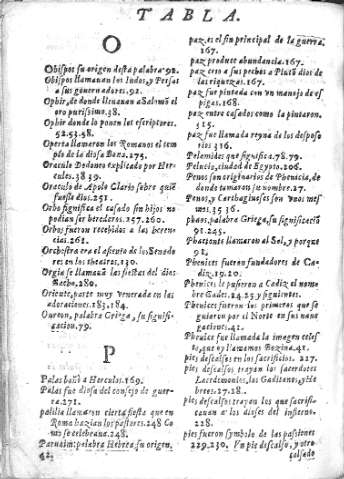 TABLA.
O
Obispos su origen desta palabra 92.
Obispos llamauan los Indos, y Persas
a sus gouernadores. 92.
Ophir, de donde lleuauan a Salomõ el
oro purissimo. 38.
Ophir donde lo ponen los escriptores.
52.53.58.
Operta llamaron los Romanos el tem
plo de la diosa Bona. 275.
Oraculo Dodoneo explicado por Her-
cules. 38 39.
Oraculo de Apolo Clario sobre quiẽ
fuesse dios. 251.
Orbo significa el casado sin hijos no
podian ser herederos. 257. 260.
Orbos fueron recebidos a las heren-
cias. 261.
Orchestra era el asiento de los Senado
res en los theatros. 130.
Orgia se llamauã las fiestas del dios
Bacho. 280.
Oriente, parte muy venerada en las
adoraciones. 183. 184.
Oureon, palabra Griega, su signifi-
cacion. 79.
P
Palas
a Hercules. 169.
Palas fue diosa del consejo de guer-
ra. 271.
palilia llamaron cierta fiesta que en
Roma hazian los pastores. 248 Co
mo se celebraua. 248.
palabra Hebrea, su origen.
42.
paz, es el fin principal de la guerra
167.
paz produce abundancia. 167.
paz crio a sus pechos a Plutõ dios de
las riquezas. 167.
paz fue pintada con vn manojo de es
pigas. 168.
paz entre casados como la pintaron.
315.
paz fue llamada reyna de los desposo
rios 316.
Pelamides que significa. 78.79.
Pelusio, ciudad de Egypto. 206.
Penos son originarios de Phenicia, de
donde tomaron su nombre. 27.
Penos, y Carthagineses son vnos mes-
mos. 35 36.
phaos, palabra Griega, su significaciõ
91. 245.
Phaetonte llamaron al Sol, y porque
91.
Phenices fueron fundadores de Ca-
diz. 19.20.
Phenices le pusieron a Cadiz el nom
bre Gades. 24.25 y siguientes.
Phenices fueron los primeros que si
guieron por el Norte en sus naue
gaciones. 41.
Phenice fue llamada la imagen celes
te, que oy llamamos Bozina. 41.
pies descalços en los sacrificios. 227.
pies descalços trayan los sacerdotes
Lacedemonios, los Gaditanos, y He
breos. 27.28.
pies descalços trayan los que sacrifi-
cauan a los dioses del infierno.
228.
pies fueron symbolo de las passiones
229.230. Vn pie descalço, y otro
calçado